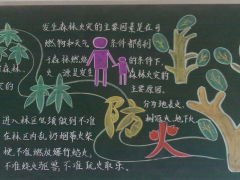 发生森林火灾的主要因素是在可
燃物和天气条件都有利
于森林燃烧的条件下,
火源是发生森林火灾的
主要原因。
分为地表火、
树冠火、地下火
防火
进入林区必须做到不准
在林区内乱扔烟蒂火柴
梗、不准燃放爆竹焰火、
不准烧火驱兽、不准玩火取乐。